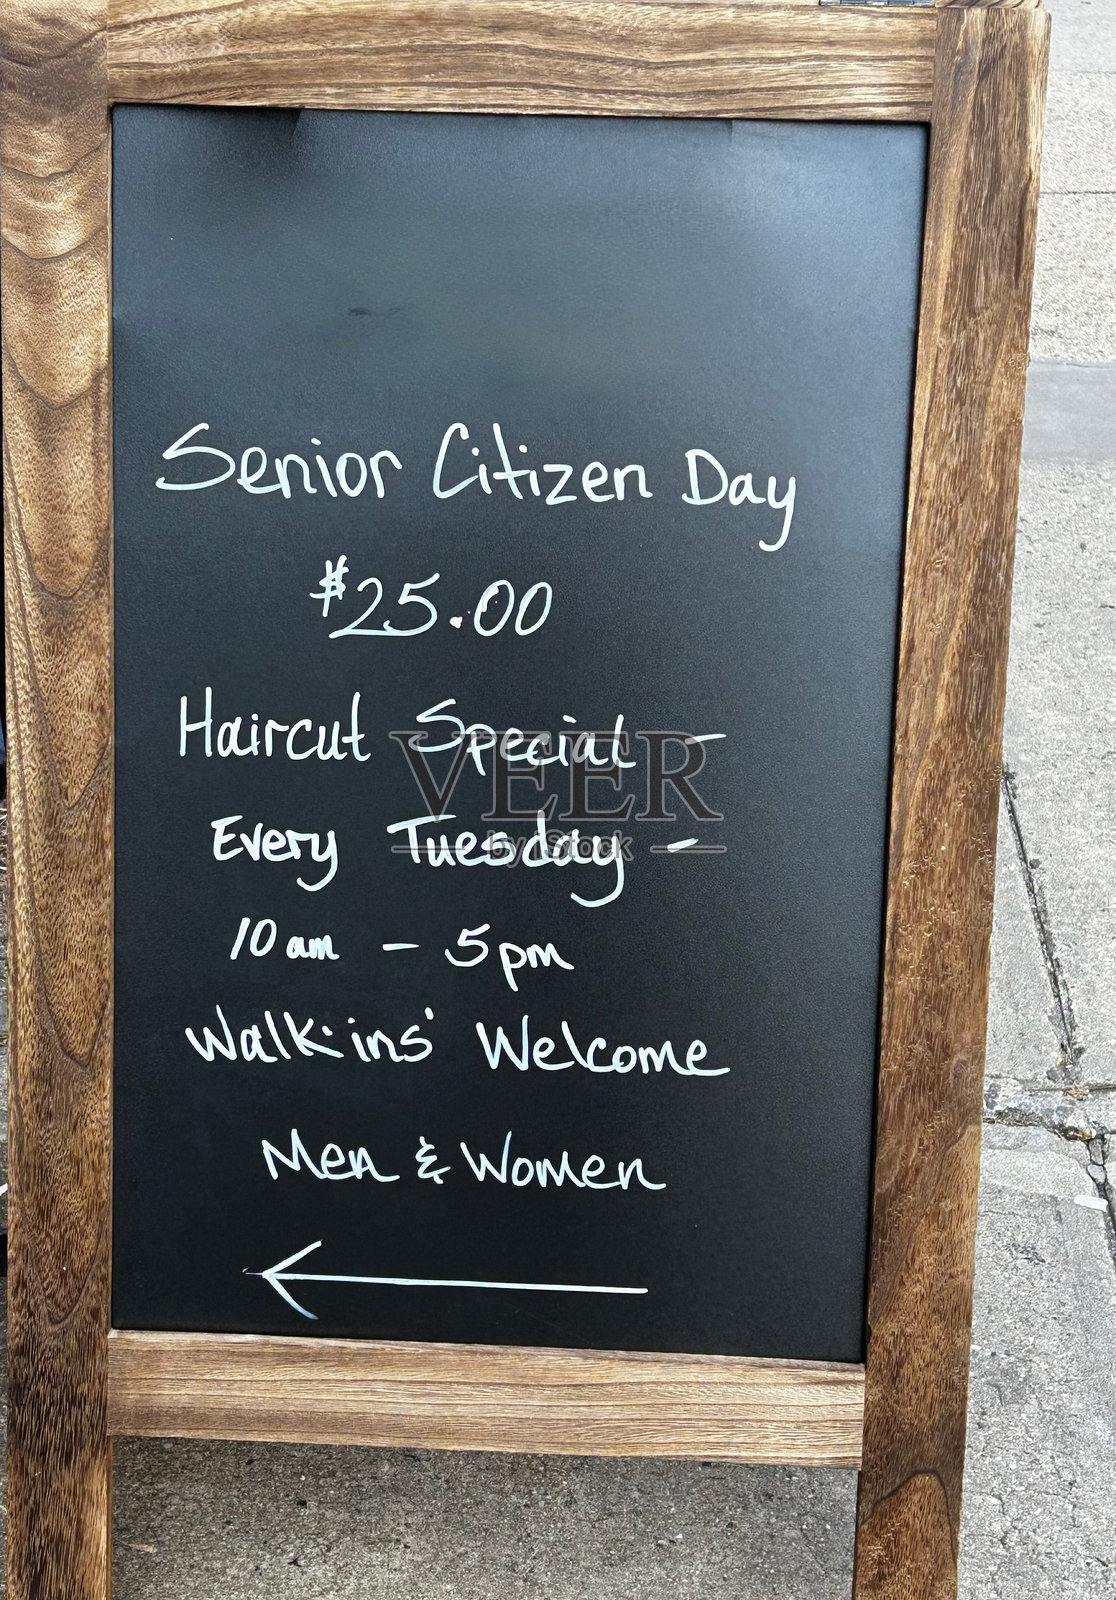 Senior Citizen Day
$25.00
Haircut Special -
VEER
by iStock
Every Tuesday -
10 am - 5 pm
Walk-ins' Welcome
Men & Women